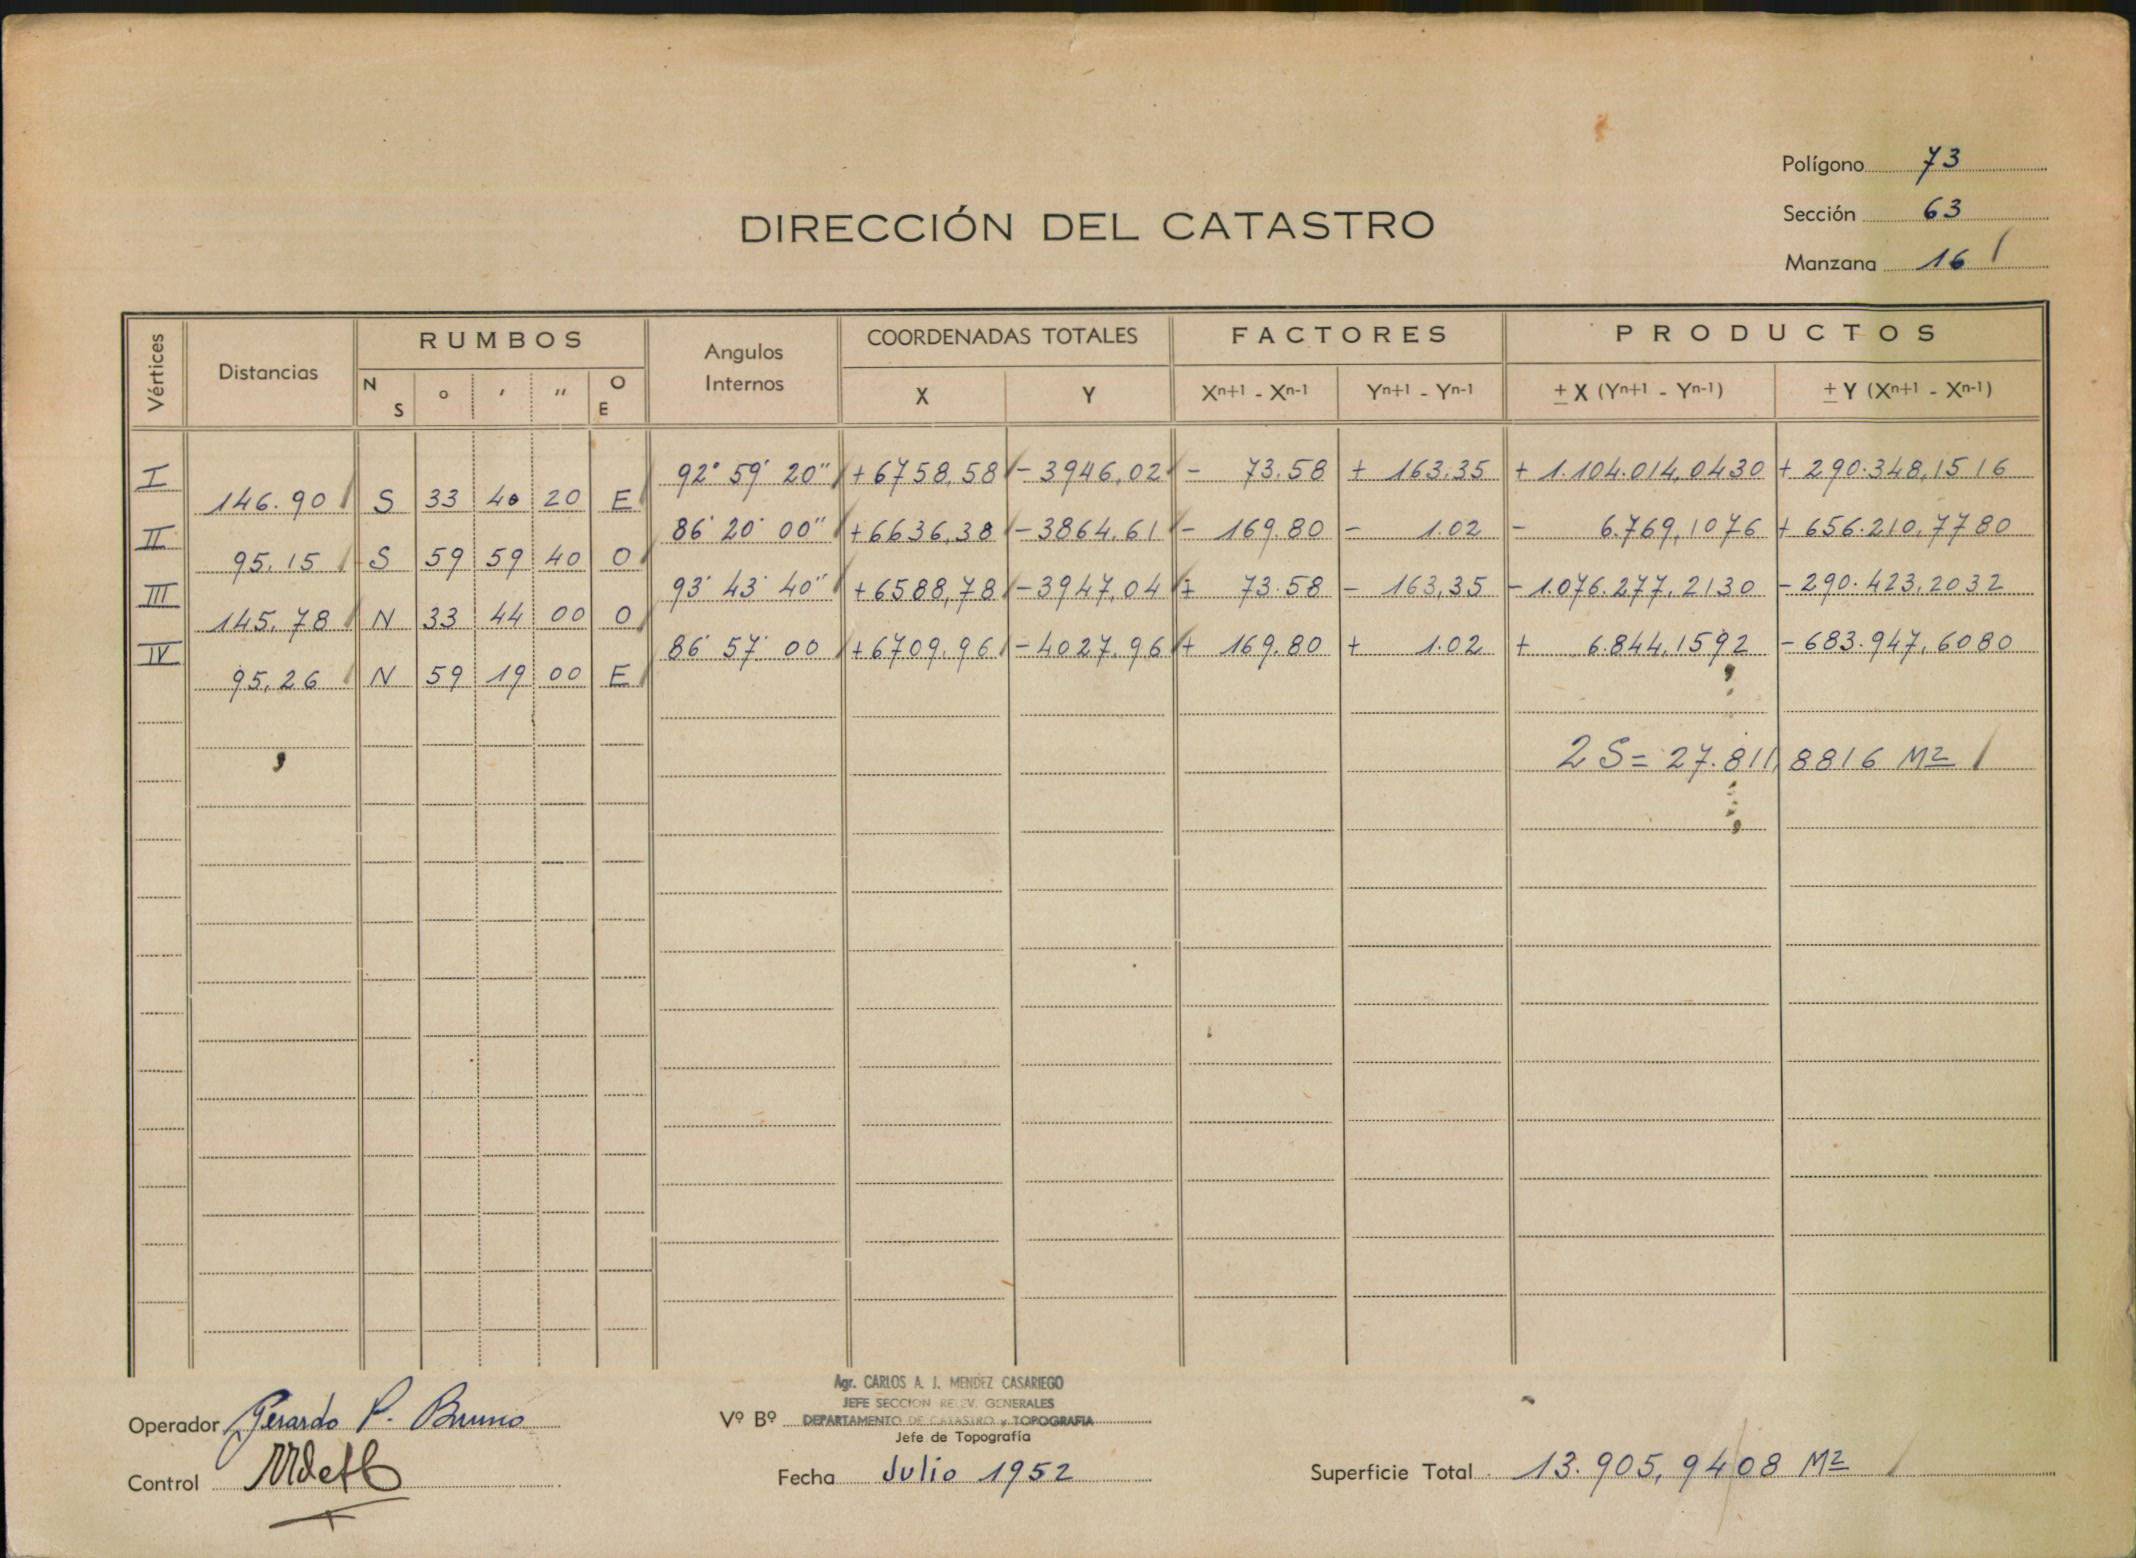 Polígono 73
Sección 63
Manzana 16
DIRECCIÓN DEL CATASTRO
Vértices Distancias RUMBOS Angulos Internos COORDENADAS TOTALES FACTORES PRODUCTOS
N S ° ′ ″ O E X Y Xn+1 - Xn-1 Yn+1 - Yn-1 ± X (Yn+1 - Yn-1) ± Y (Xn+1 - Xn-1)
I 92° 59' 20" +6758,58 -3946,02 - 73.58 + 163.35 + 1.104.014,0430 + 290.348,1516
146.90 S 33 40 20 E
II 86° 20' 00" +6636,38 -3864.61 - 169.80 - 1.02 - 6.769,1076 + 656.210,7780
95.15 S 59 59 40 O
III 93° 43' 40" +6588,78 -3947,04 + 73.58 - 163,35 - 1.076.277,2130 - 290.423,2032
145.78 N 33 44 00 O
IV 86° 57' 00 +6709.96 -4027.96 + 169.80 + 1.02 + 6.844,1592 - 683.947,6080
95,26 N 59 19 00 E
2 S = 27.811,8816 M2
Agr. CARLOS A. J. MENDEZ CASARIEGO
JEFE SECCION RELEV. GENERALES
Operador Gerardo P. Bruno Vº Bº DEPARTAMENTO DE CATASTRO y TOPOGRAFIA
Jefe de Topografía
Control Fecha Julio 1952 Superficie Total 13.905,9408 M2